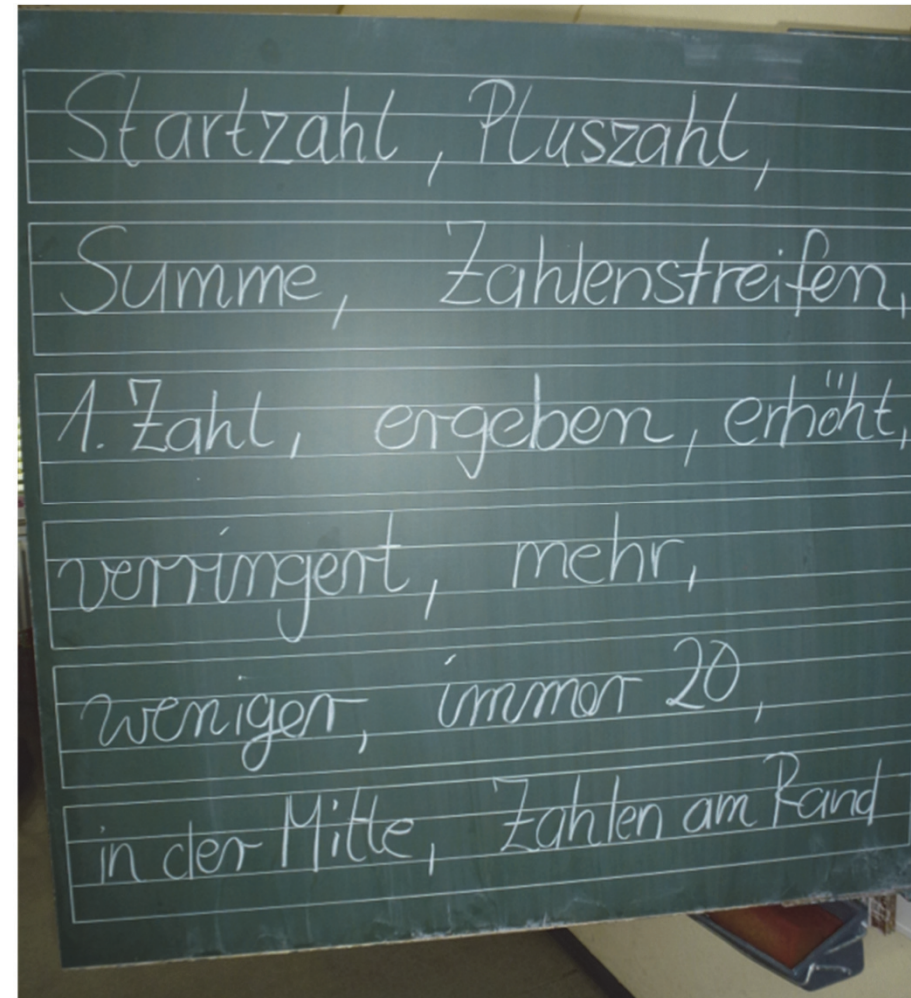 Startzahl, Pluszahl,
Summe, Zahlenstreifen,
1. Zahl, ergeben, erhöht,
verringert, mehr,
weniger, immer 20,
in der Mitte, Zahlen am Rand